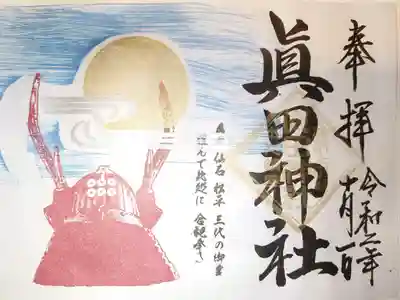 奉拝
令和二年
十月一日
眞田神社
仙石 松平 三代の御霊
謹んで に 合祀奉る